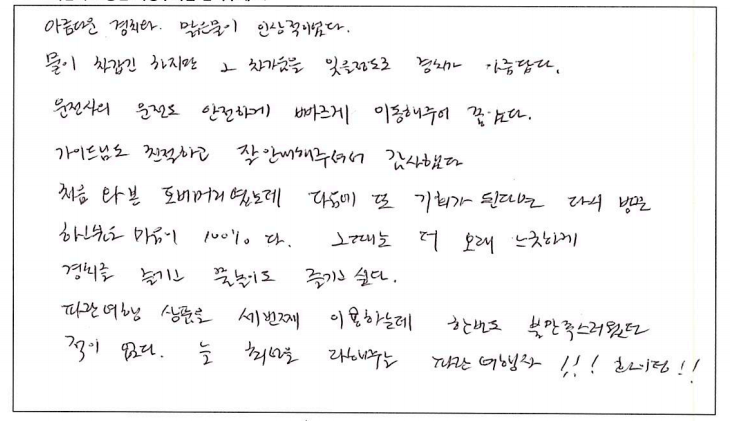 아름다운 경치와 맑은물이 인상적이었다.
물이 차갑긴 하지만 그 차가움을 잊을정도로 경치가 아름답다.
운전사의 운전도 안전하게 빠르게 이동해주어 좋았다.
가이드님도 친절하고 잘안내해주셔서 감사했다
처음 와 본 도비머리였는데 다음에 또 기회가 된다면 다시 방문
하고싶은 마음이 100%다. 그때는 더 오래 느긋하게
경치를 즐기고 물놀이도 즐기고 싶다.
파란여행 상품을 세번째 이용하는데 한번도 불만족스러웠던
적이 없다. 늘 최선을 다해주는 파란여행사 !!! 화이팅!!